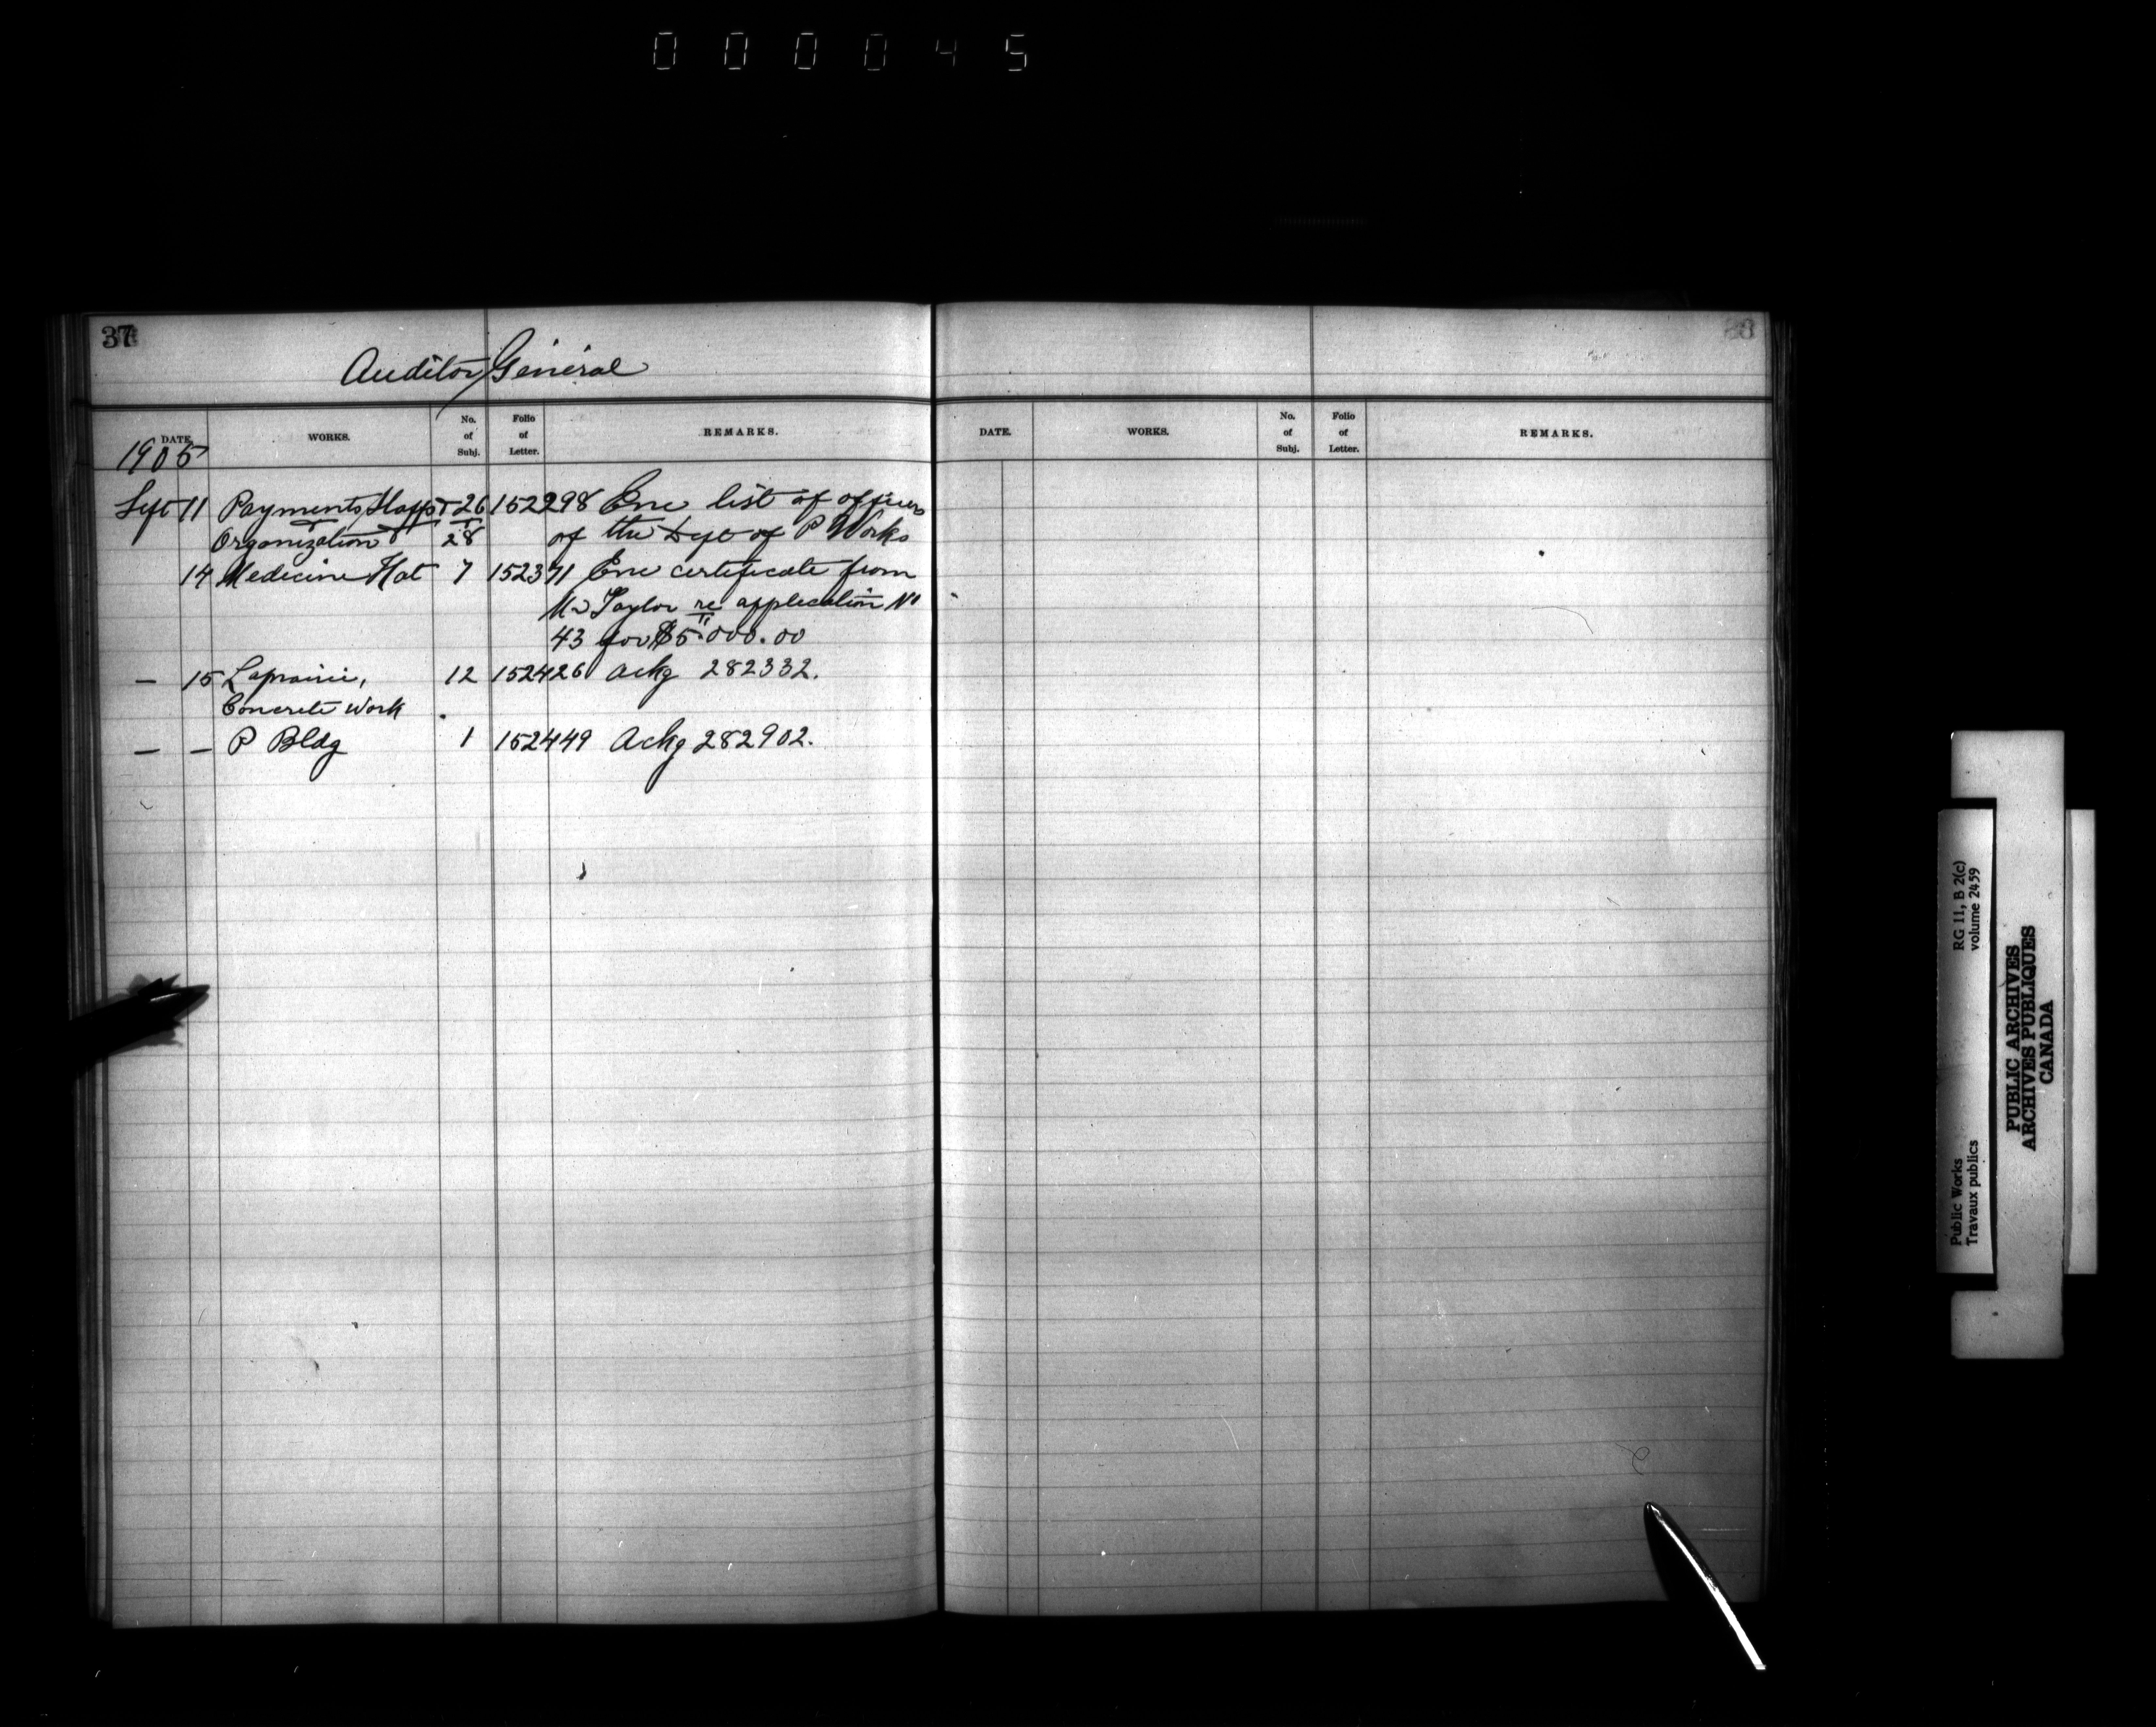 000045
37
Auditor General
DATE. WORKS. No. of Subj. Folio of Letter. REMARKS.
1905
Sept 11 Payments, Staff T 26 152298 Enc list of officers
Organization 28 of the Dept of P Works
14 Medicine Hat 7 152371 Enc certificate from
Mr Taylor re application No
43 for $5000.00
— 15 Laprairie, 12 152426 Ackg 282332.
Concrete Work
— — P Bldg 1 152449 Ackg 282902.
DATE. WORKS. No. of Subj. Folio of Letter. REMARKS.
Public Works RG 11, B 2(c)
Travaux publics volume 2459
PUBLIC ARCHIVES
ARCHIVES PUBLIQUES
CANADA